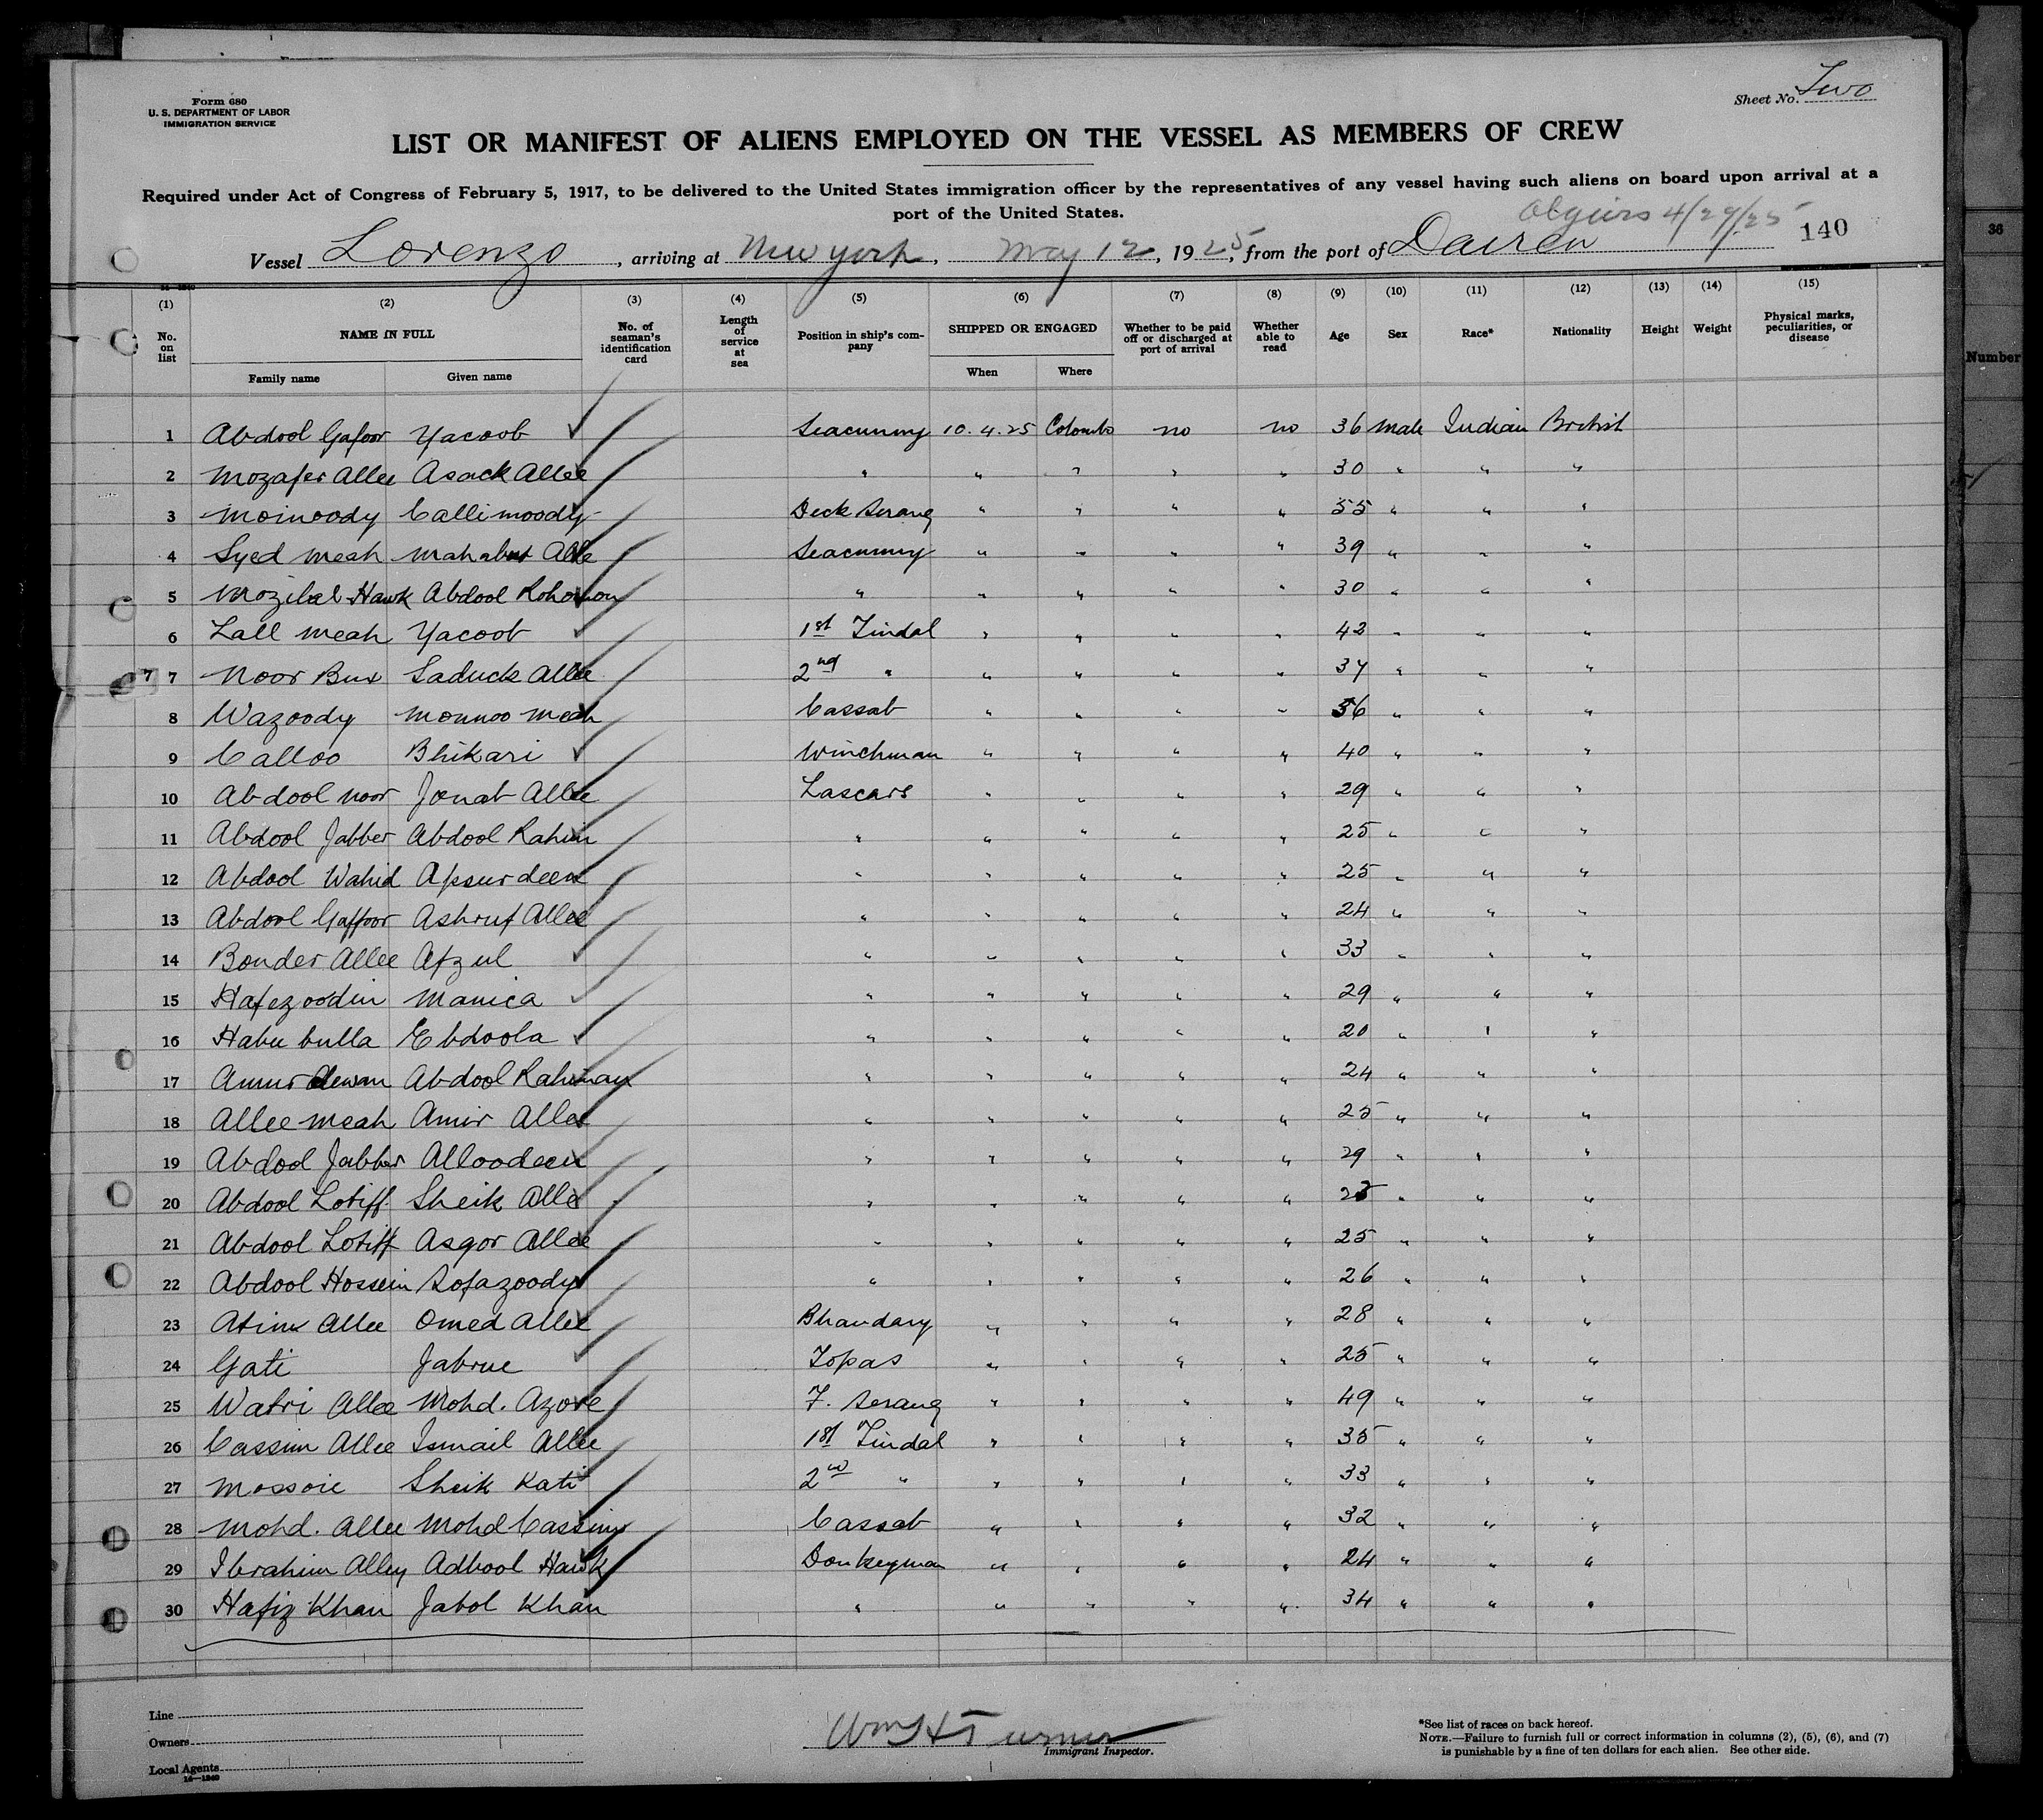 Form 680
U. S. DEPARTMENT OF LABOR
IMMIGRATION SERVICE
Sheet No. Two
LIST OR MANIFEST OF ALIENS EMPLOYED ON THE VESSEL AS MEMBERS OF CREW
Required under Act of Congress of February 5, 1917, to be delivered to the United States immigration officer by the representatives of any vessel having such aliens on board upon arrival at a
port of the United States.
Algiers 4/29/25
Vessel Lorenzo, arriving at New York, May 12, 1925, from the port of Dairen 140
(1) (2) (3) (4) (5) (6) (7) (8) (9) (10) (11) (12) (13) (14) (15)
No. on list NAME IN FULL No. of seaman's identification card Length of service at sea Position in ship's company SHIPPED OR ENGAGED Whether to be paid off or discharged at port of arrival Whether able to read Age Sex Race* Nationality Height Weight Physical marks, peculiarities, or disease
Family name Given name When Where
1 Abdool Gafoor Yacoob Seacunny 10.4.25 Colombo no no 36 male Indian British
2 Mozafer Allee Asack Allee " " " " " 30 " " "
3 Moinoody Callimoody Deck Serang " " " " 55 " " "
4 Syed Meah Mahabut Allee Seacunny " " " " 39 " " "
5 Mozibal Hawk Abdool Rohomon " " " " " 30 " " "
6 Lall Meah Yacoob 1st Tindal " " " " 42 " " "
7 7 Noor Bux Saduck Allee 2nd " " " " " 37 " " "
8 Wazoody Monnoo Meah Cassab " " " " 36 " " "
9 Calloo Bhikari Winchman " " " 40 " " "
10 Abdool Noor Jonab Allee Lascars " " " " 29 " " "
11 Abdool Jabber Abdool Rahim " " " " " 25 " " "
12 Abdool Wahid Apsurdeen " " " " " 25 " " "
13 Abdool Gaffoor Ashruf Allee " " " " " 24 " " "
14 Bonder Allee Afzul " " " " " 33 " " "
15 Hafezoodin Manica " " " " " 29 " " "
16 Habu bulla Ebdoola " " " " " 20 " " "
17 Abdool Rahiman " " " " " 24 " " "
18 Allee Meah Amir Allee " " " " " 25 " " "
19 Abdool Jabber Alloodeen " " " " " 29 " " "
20 Abdool Lotiff Sheik Allee " " " " " " " "
21 Abdool Lotiff Asgor Allee " " " " " 25 " " "
22 Abdool Hossein Sofazoody " " " " " 26 " " "
23 Atim Allee Omed Allee Bhandary " " " " 28 " " "
24 Gati Jabrue Topas " " " " 25 " " "
25 Watri Allee Mohd. Azore F. Serang " " " " 49 " " "
26 Cassim Allee Ismail Allee 1st Tindal " " " " 35 " " "
27 Mossoie Sheik Kati 2nd " " " " " 33 " " "
28 Mohd. Allee Mohd Cassim Cassab " " " " 32 " " "
29 Ibrahim Alley Adbool Hawk Donkeyman " " " " 24 " " "
30 Hafiz Khan Jabol Khan " " " " " 34 " " "
Line
Owners
Local Agents
14—1240
Wm H Turner
Immigrant Inspector.
*See list of races on back hereof.
NOTE.—Failure to furnish full or correct information in columns (2), (5), (6), and (7)
is punishable by a fine of ten dollars for each alien. See other side.
36
Number